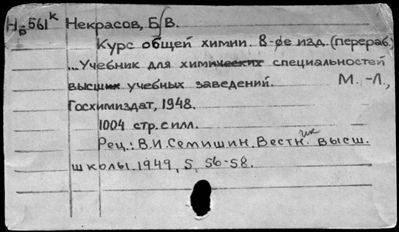 Нб561к Некрасов, Б.В.
Курс общей химии. 8-ое изд. (перераб)
...Учебник для химических специальностей
высших учебных заведений. М.-Л.,
Госхимиздат, 1948.
1004 стр. с илл.
Рец.: В.И Семишин. Вестник высш.
школы. 1949, 5, 56-58.